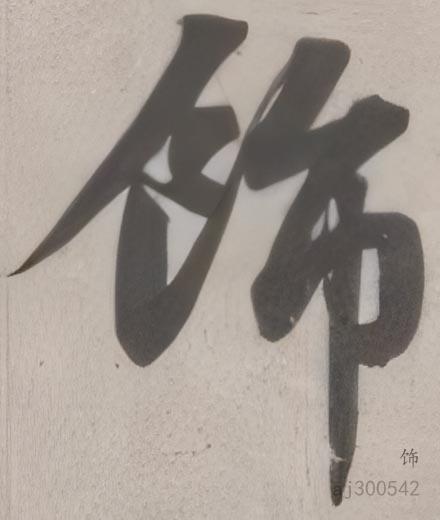 饰
饰
aj300542